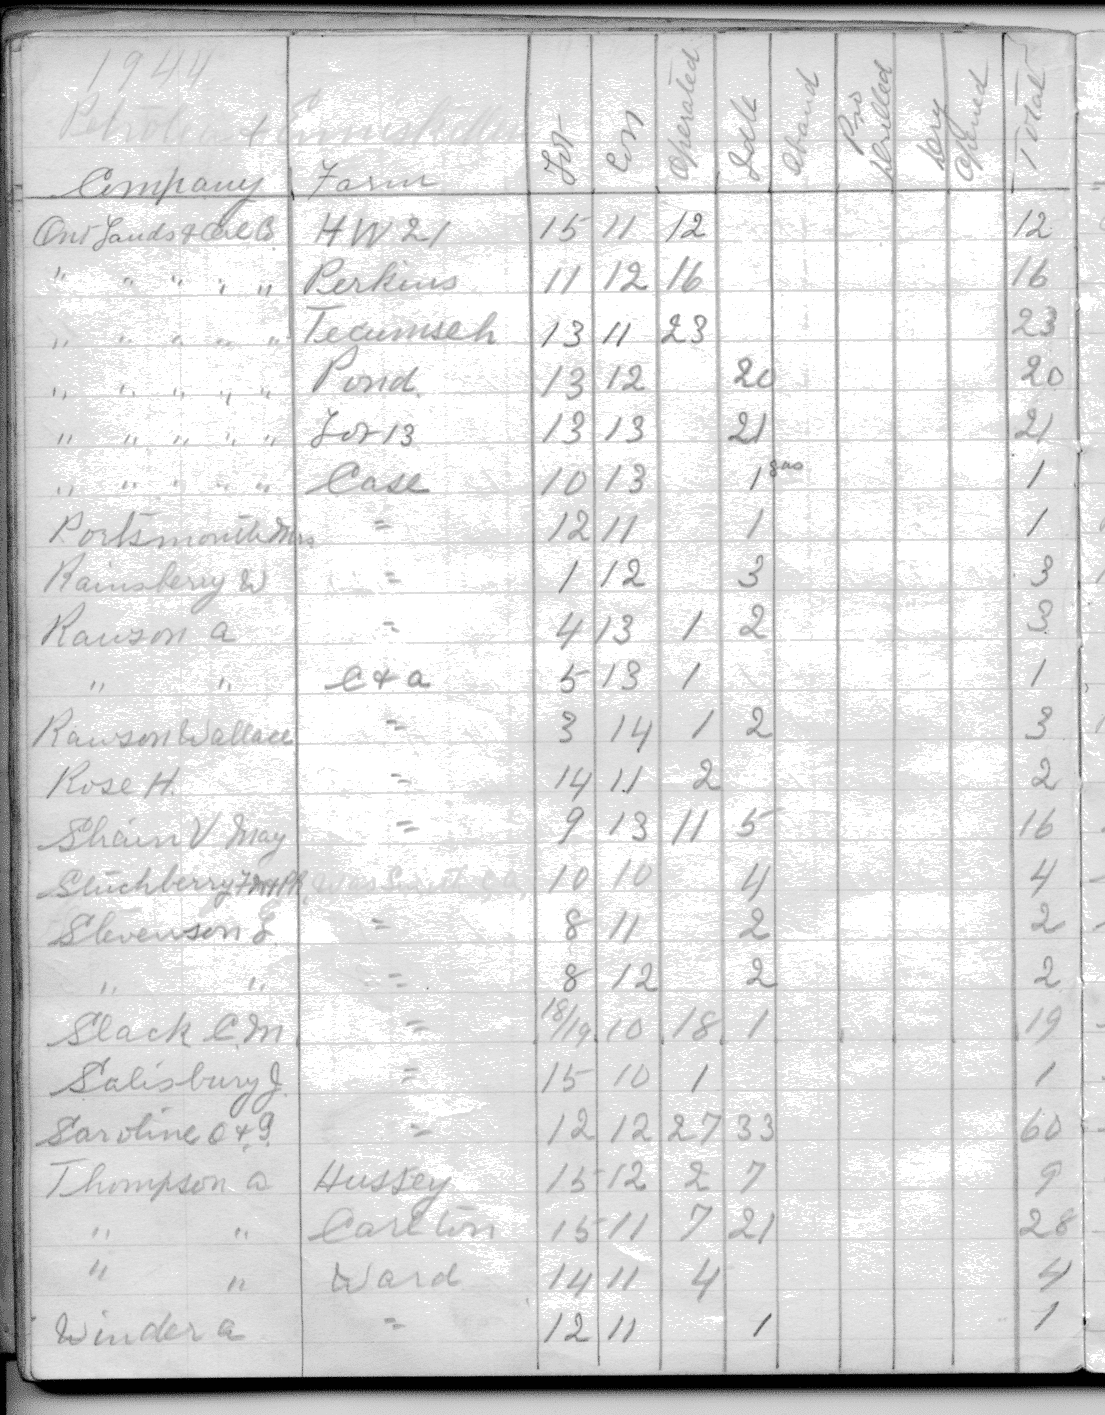 1944
Petrolia & Enniskillen
Company Farm Lot Con Operated Idle Aband Pro Drilled Dry Opened Total
Ont Lands & Oil Co. H W 21 15 11 12 12
" " " " " Perkins 11 12 16 16
" " " " " Tecumseh 13 11 23 23
" " " " " Pond. 13 12 20 20
" " " " " Lot 13 13 13 21 21
" " " " " Case 10 13 1 gas 1
Portsmouth Mrs " 12 11 1 1
Rainsberry W " 1 12 3 3
Rawson A " 4 13 1 2 3
" " C & A 5 13 1 1
Rawson Wallace " 3 14 1 2 3
Rose H. " 14 11 2 2
Shain V May " 9 13 11 5 16
Stuchberry 10 10 4 4
Stevenson L " 8 11 2 2
" " " 8 12 2 2
Slack C.M. " 18/19 10 18 1 19
Salisbury J. " 15 10 1 1
Saroline O & G. " 12 12 27 33 60
Thompson A Hussey 15 12 2 7 9
" " Carlton 15 11 7 21 28
" " Ward 14 11 4 4
Winder A " 12 11 1 1